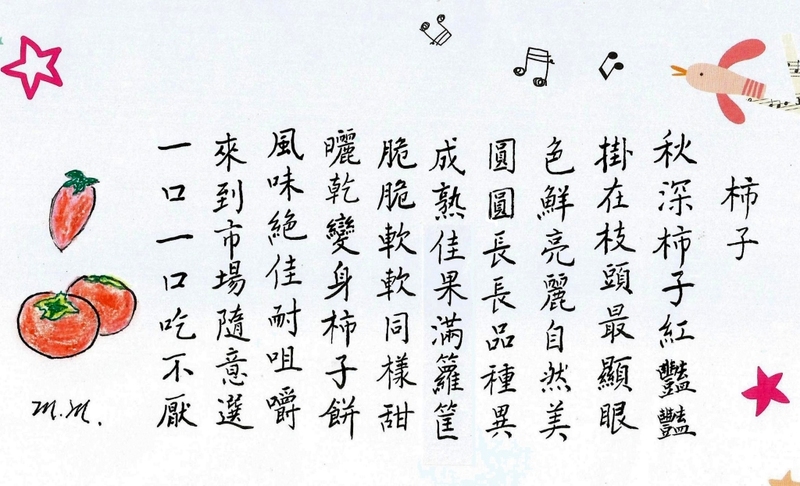 柿子
秋深柿子紅豔豔
掛在枝頭最顯眼
色鮮亮麗自然美
圓圓長長品種異
成熟佳果滿籮筐
脆脆軟軟同樣甜
曬乾變身柿子餅
風味絕佳耐咀嚼
來到市場隨意選
一口一口吃不厭
M.M.